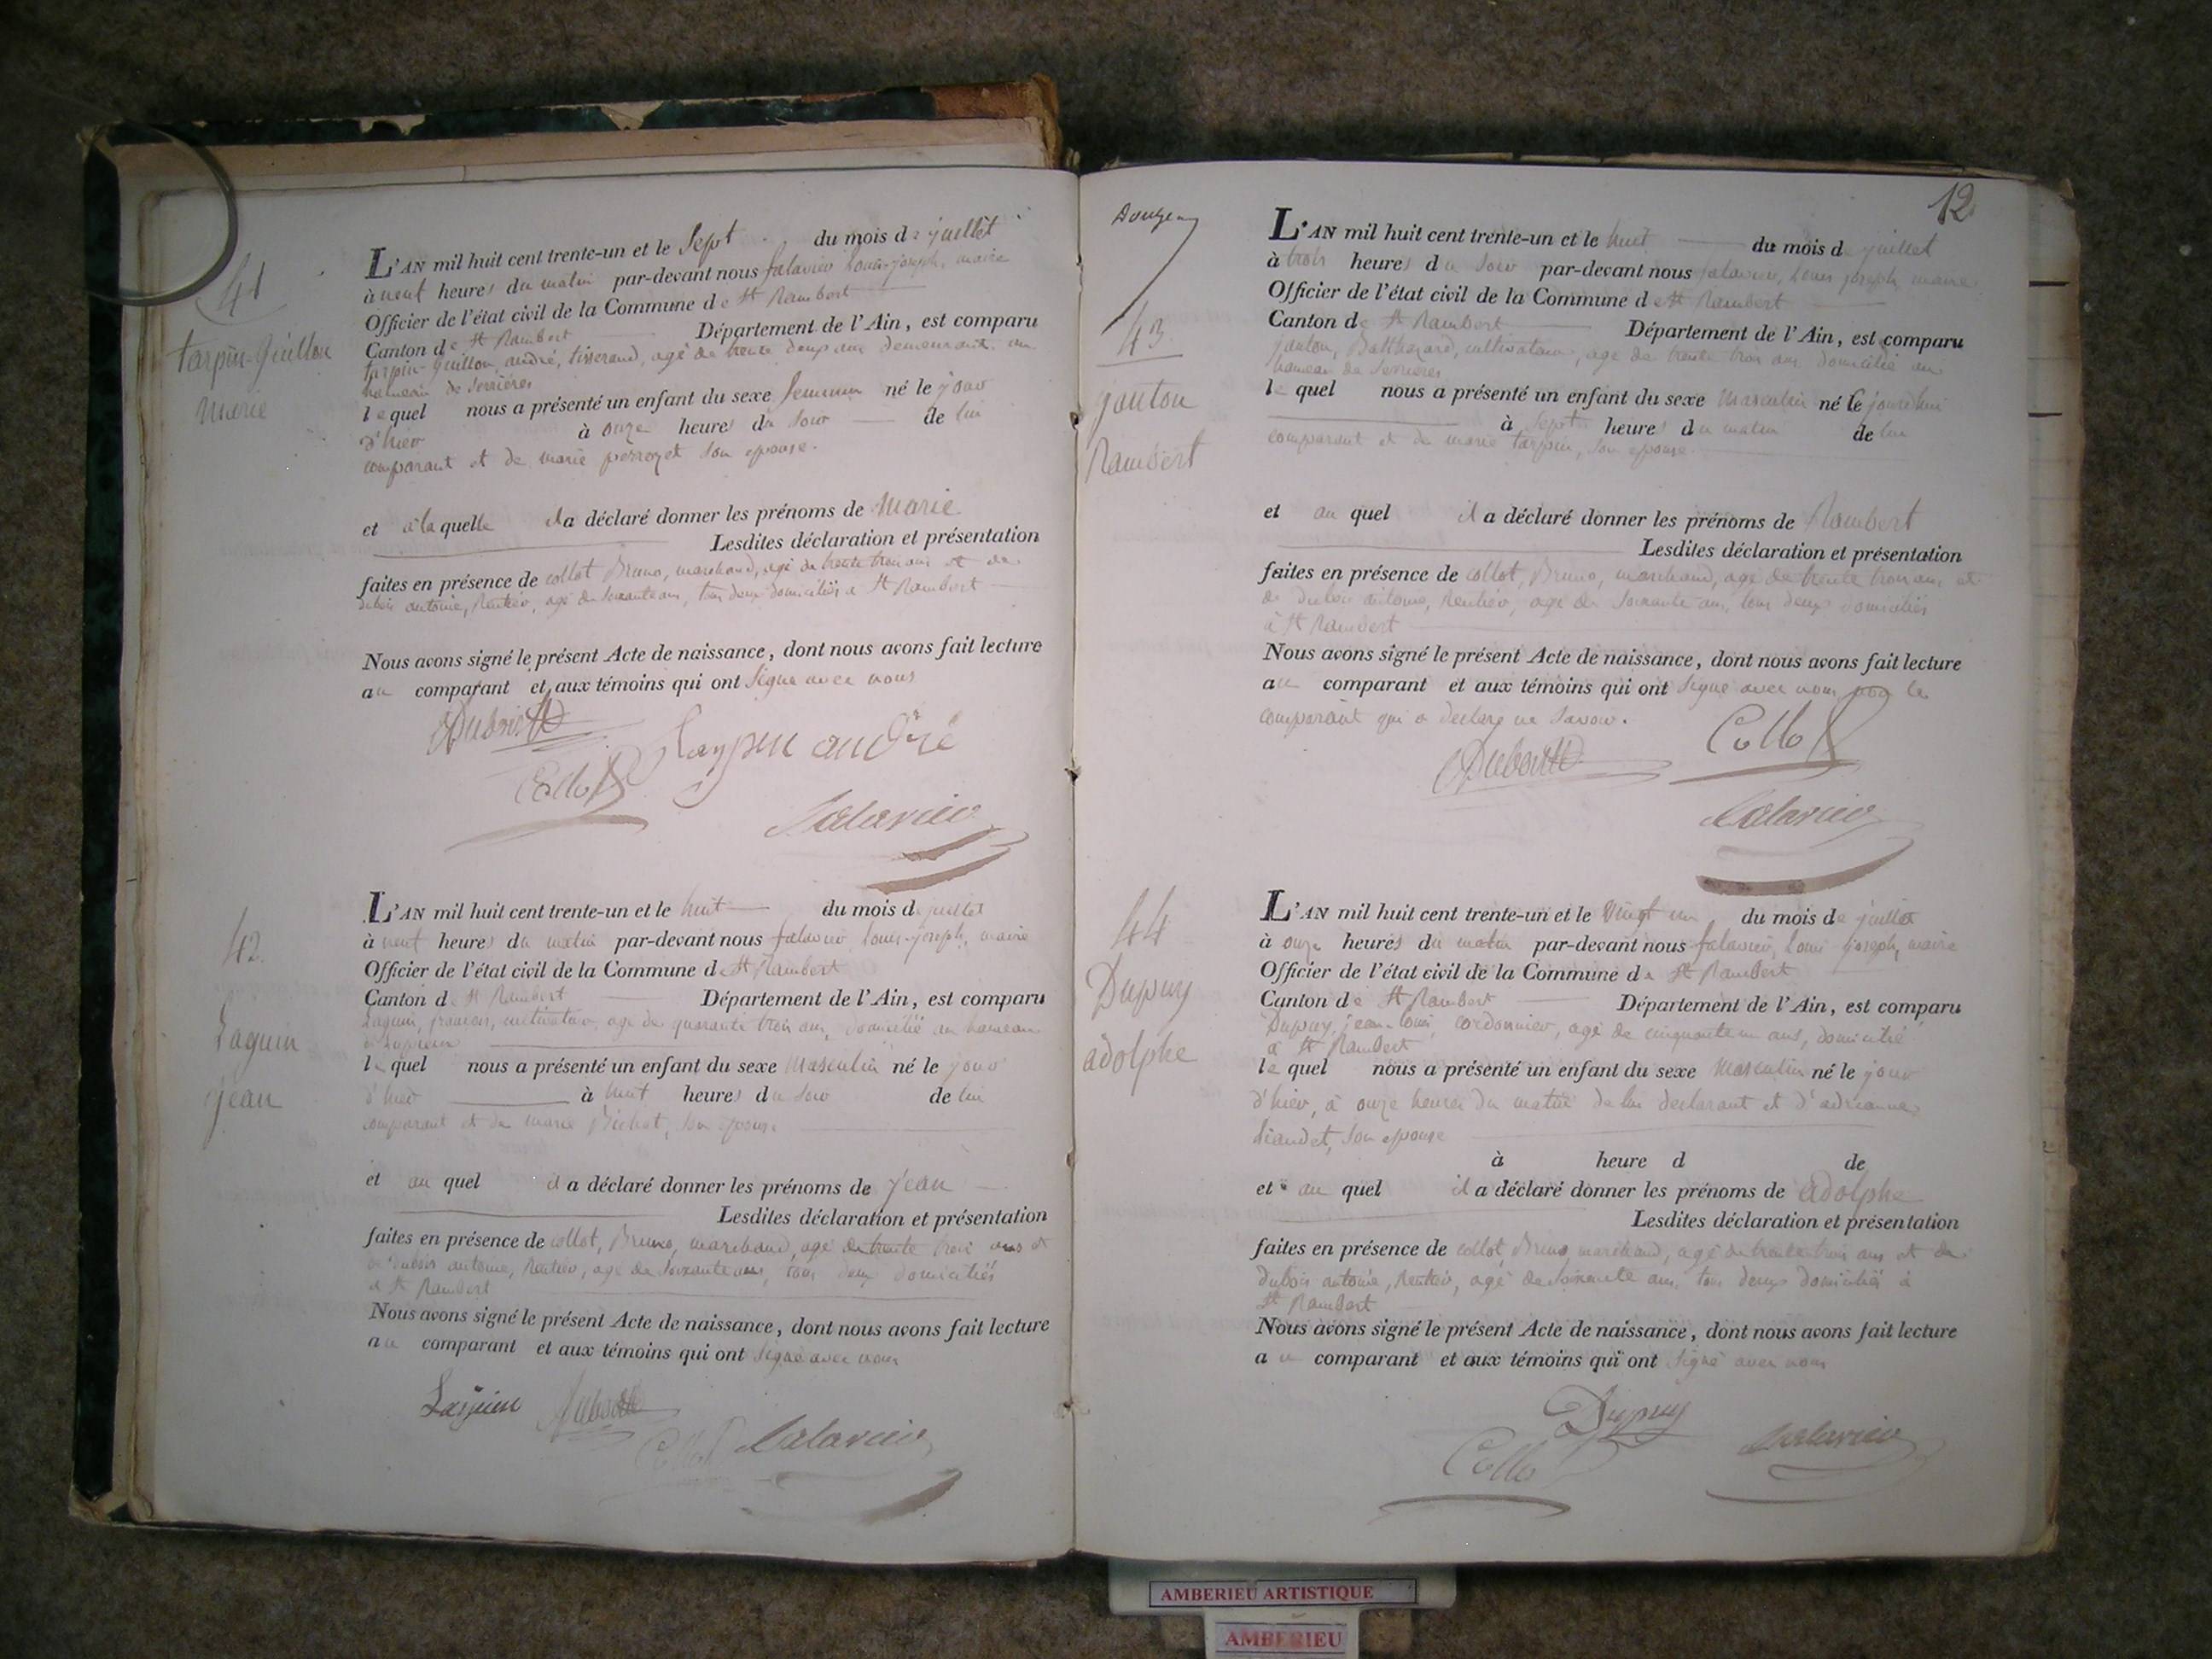 41
tarpin-Guillon
Marie
L'AN mil huit cent trente-un et le Sept du mois de juillet
à neuf heures du matin par-devant nous falavier Louis-joseph, maire
Officier de l'état civil de la Commune de St Rambert
Canton de St Rambert Département de l'Ain, est comparu
tarpin-Guillon, andré, tisserand, agé de trente deux ans demeurant au
hameau de Serrières
lequel nous a présenté un enfant du sexe feminin né le jour
d'hier à onze heures du soir de lui
comparant et de marie perrozet son epouse.
et à laquelle il a déclaré donner les prénoms de Marie
Lesdites déclaration et présentation
faites en présence de collot Bruno, marchand, agé de trente trois ans et de
dubois antoine, Rentier, agé de soixante ans, tous deux domiciliés à St Rambert
Nous avons signé le présent Acte de naissance, dont nous avons fait lecture
au comparant et aux témoins qui ont signé avec nous
Tarpin andré
Collot
falavier
42
Laguin
jean
L'AN mil huit cent trente-un et le huit du mois de juillet
à neuf heures du matin par-devant nous falavier louis-joseph, maire
Officier de l'état civil de la Commune de St Rambert
Canton de St Rambert Département de l'Ain, est comparu
Laguin, francois, cultivateur, agé de quarante trois ans, domicilié au hameau
lequel nous a présenté un enfant du sexe Masculin né le jour
d'hier à huit heures du soir de lui
comparant et de marie Bichat, son epouse
et au quel il a déclaré donner les prénoms de jean
Lesdites déclaration et présentation
faites en présence de collot, Bruno, marchand, agé de trente trois ans et
de Dubois antoine, Rentier, agé de soixante ans, tous deux domiciliés
à St Rambert
Nous avons signé le présent Acte de naissance, dont nous avons fait lecture
au comparant et aux témoins qui ont signé avec nous
Laguin
Collot falavier
12
Douze
43
jouton
Rambert
L'AN mil huit cent trente-un et le huit du mois de juillet
à trois heures du soir par-devant nous falavier, Louis joseph, maire
Officier de l'état civil de la Commune de St Rambert
Canton de St Rambert Département de l'Ain, est comparu
jouton, Balthazard, cultivateur, agé de trente trois ans domicilié au
hameau de Serrières
lequel nous a présenté un enfant du sexe Masculin né le jourd'hui
à sept heures du matin de lui
comparant et de marie tarpin, son epouse
et au quel il a déclaré donner les prénoms de Rambert
Lesdites déclaration et présentation
faites en présence de collot, Bruno, marchand, agé de trente trois ans et
de dubois antoine, Rentier, agé de soixante ans, tous deux domiciliés
à St Rambert
Nous avons signé le présent Acte de naissance, dont nous avons fait lecture
au comparant et aux témoins qui ont signé avec nous non le
comparant qui a declaré ne savoir.
Collot
falavier
44
Dupuy
adolphe
L'AN mil huit cent trente-un et le Vingt un du mois de juillet
à onze heures du matin par-devant nous falavier, Louis-joseph, maire
Officier de l'état civil de la Commune de St Rambert
Canton de St Rambert Département de l'Ain, est comparu
Dupuy, jean-louis, cordonnier, agé de cinquante un ans, domicilié
à St Rambert
lequel nous a présenté un enfant du sexe Masculin né le jour
d'hier, à onze heures du matin de lui declarant et d'adrianne
son epouse
à heure d de
et au quel il a déclaré donner les prénoms de adolphe
Lesdites déclaration et présentation
faites en présence de collot, Bruno, marchand, agé de trente trois ans et de
Dubois antoine, Rentier, agé de soixante ans tous deux domiciliés à
St Rambert
Nous avons signé le présent Acte de naissance, dont nous avons fait lecture
au comparant et aux témoins qui ont signé avec nous
Dupuy
Collot falavier
AMBERIEU ARTISTIQUE
AMBERIEU